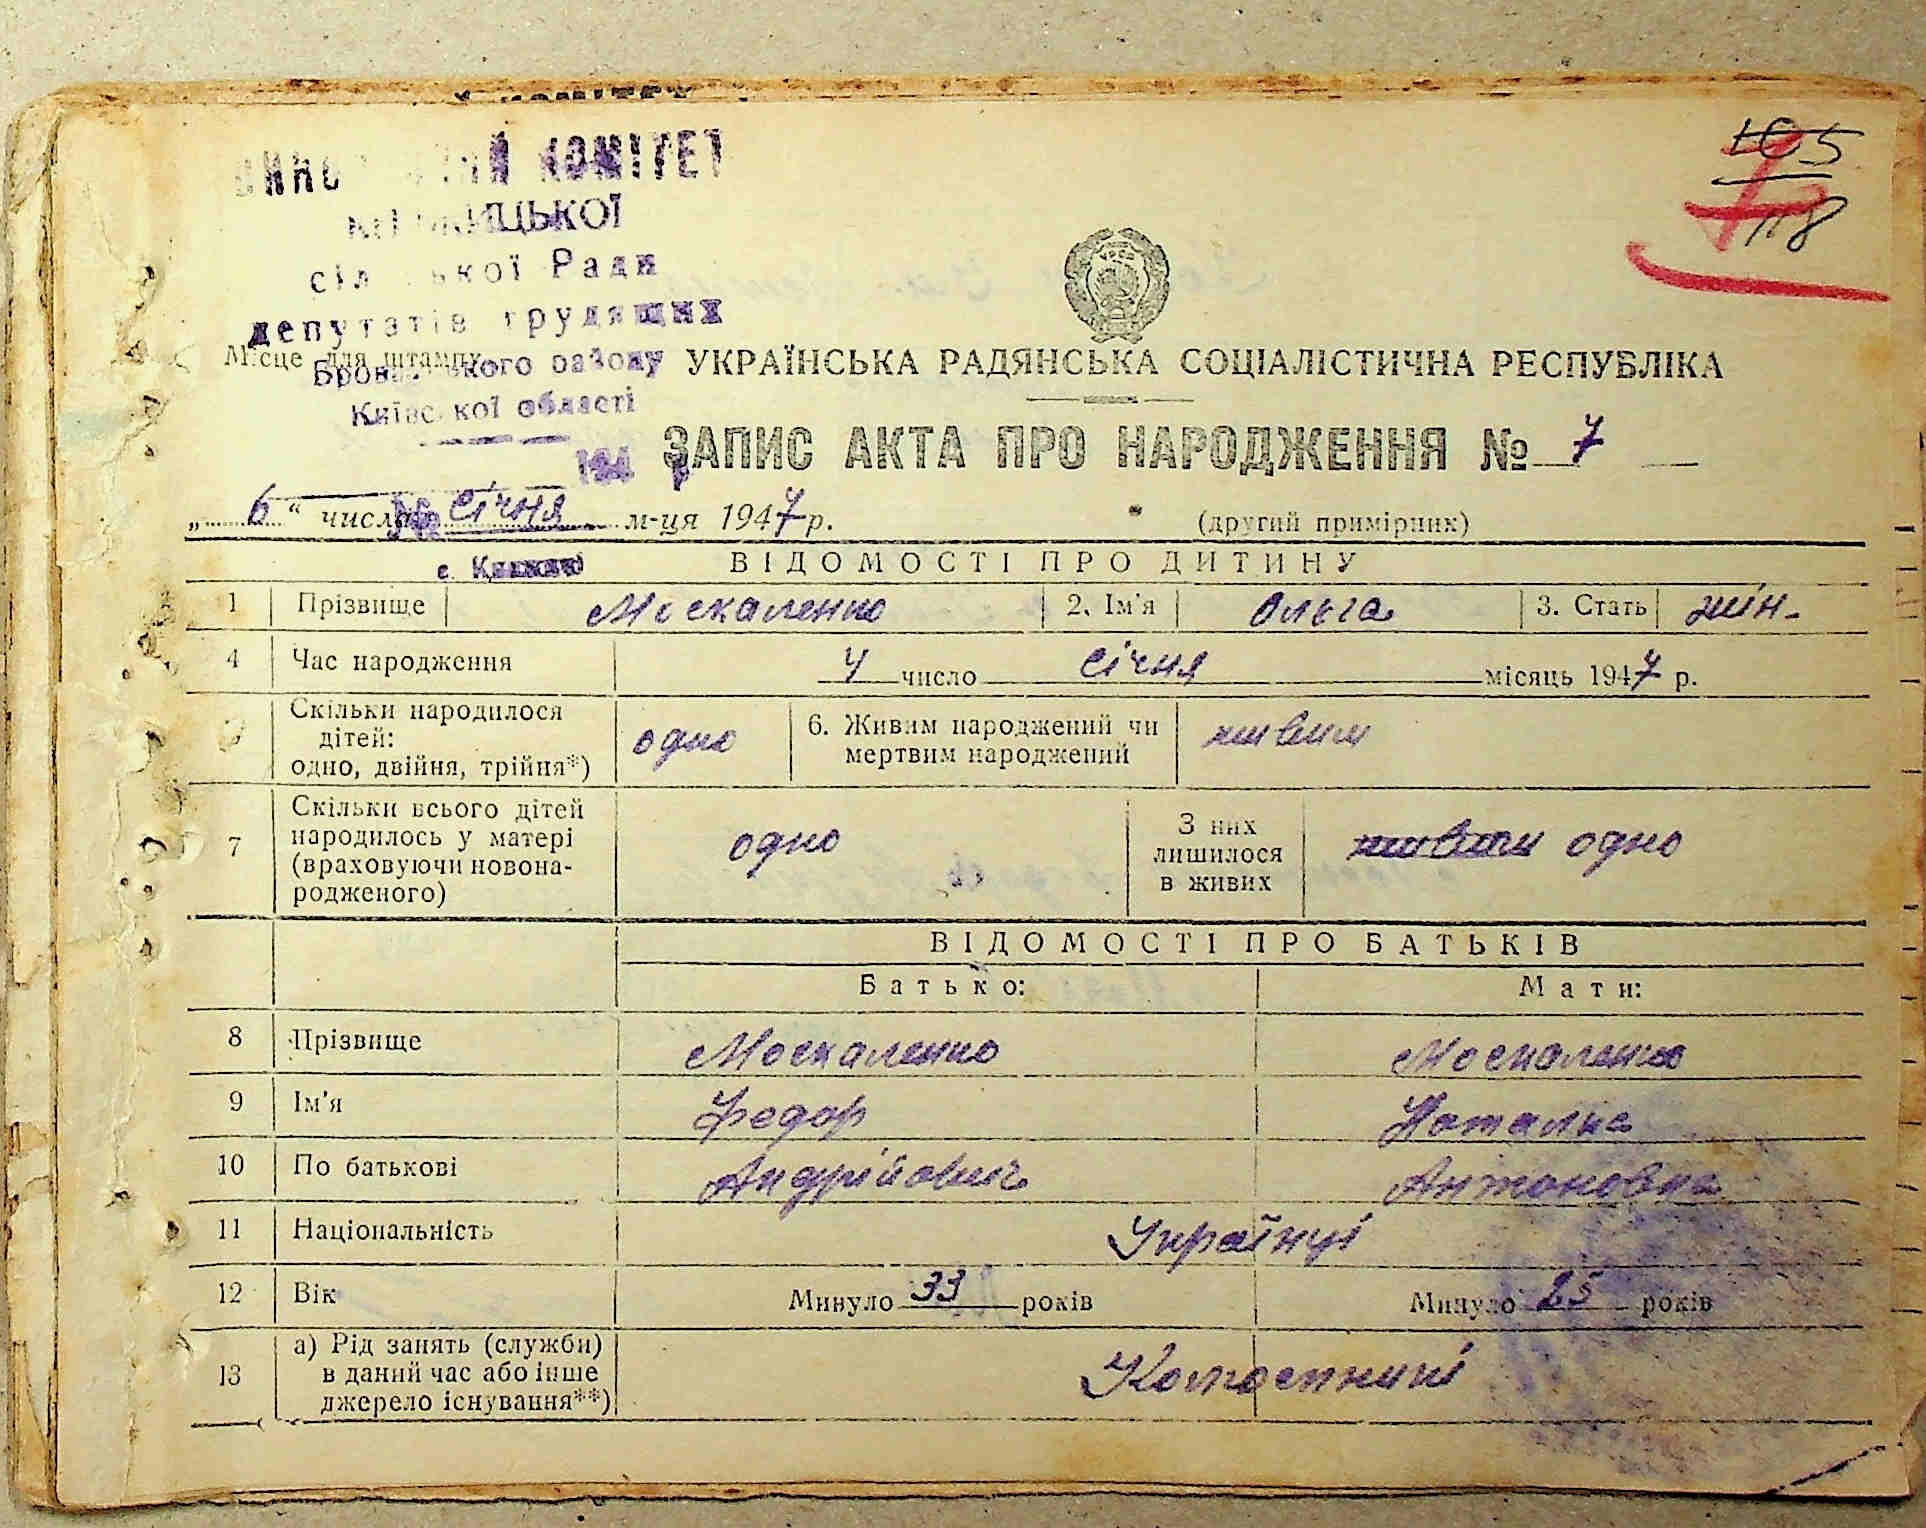 КОМІТЕТ
105
118
сільської Ради
депутатів трудящих
Місце для штампу
Броварського району
Київської області
УРСР
УКРАЇНСЬКА РАДЯНСЬКА СОЦІАЛІСТИЧНА РЕСПУБЛІКА
194 р
ЗАПИС АКТА ПРО НАРОДЖЕННЯ № 7
„ 6 “ числа Січня м-ця 1947 р.
(другий примірник)
с.
ВІДОМОСТІ ПРО ДИТИНУ
1 Прізвище Москаленко 2. Ім'я Ольга 3. Стать жін.
4 Час народження 4 число Січня місяць 1947 р.
Скільки народилося
дітей:
одно, двійня, трійня*)
одно
6. Живим народжений чи
мертвим народжений
живим
7
Скільки всього дітей
народилось у матері
(враховуючи новона-
родженого)
одно
З них
лишилося
в живих
живими одно
ВІДОМОСТІ ПРО БАТЬКІВ
Батько: Мати:
8 Прізвище Москаленко Москаленко
9 Ім'я Федор Наталка
10 По батькові Андрійович Антоновна
11 Національність Українці
12 Вік Минуло 33 років Минуло 25 років
13
а) Рід занять (служби)
в даний час або інше
джерело існування**)
Колгоспникі